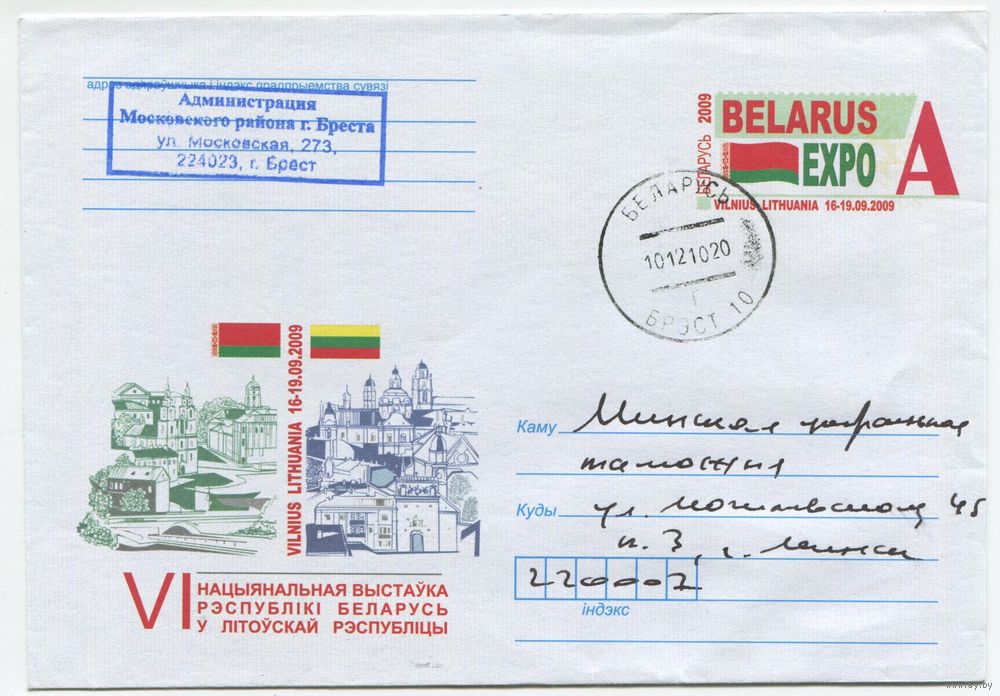 адрас адпраўшчыка і індэкс прадпрыемства сувязі
Администрация
Московского района г. Бреста
ул. Московская, 273,
224023, г. Брест
БЕЛАРУСЬ 2009
BELARUS
EXPO
A
VILNIUS LITHUANIA 16-19.09.2009
БЕЛАРУСЬ
10121020
Г
БРЭСТ 10
VILNIUS LITHUANIA 16-19.09.2009
VI НАЦЫЯНАЛЬНАЯ ВЫСТАЎКА
РЭСПУБЛІКІ БЕЛАРУСЬ
У ЛІТОЎСКАЙ РЭСПУБЛІЦЫ
Каму Минская
таможня
Куды ул. 45
к. 3, г. Минск
220007
індэкс